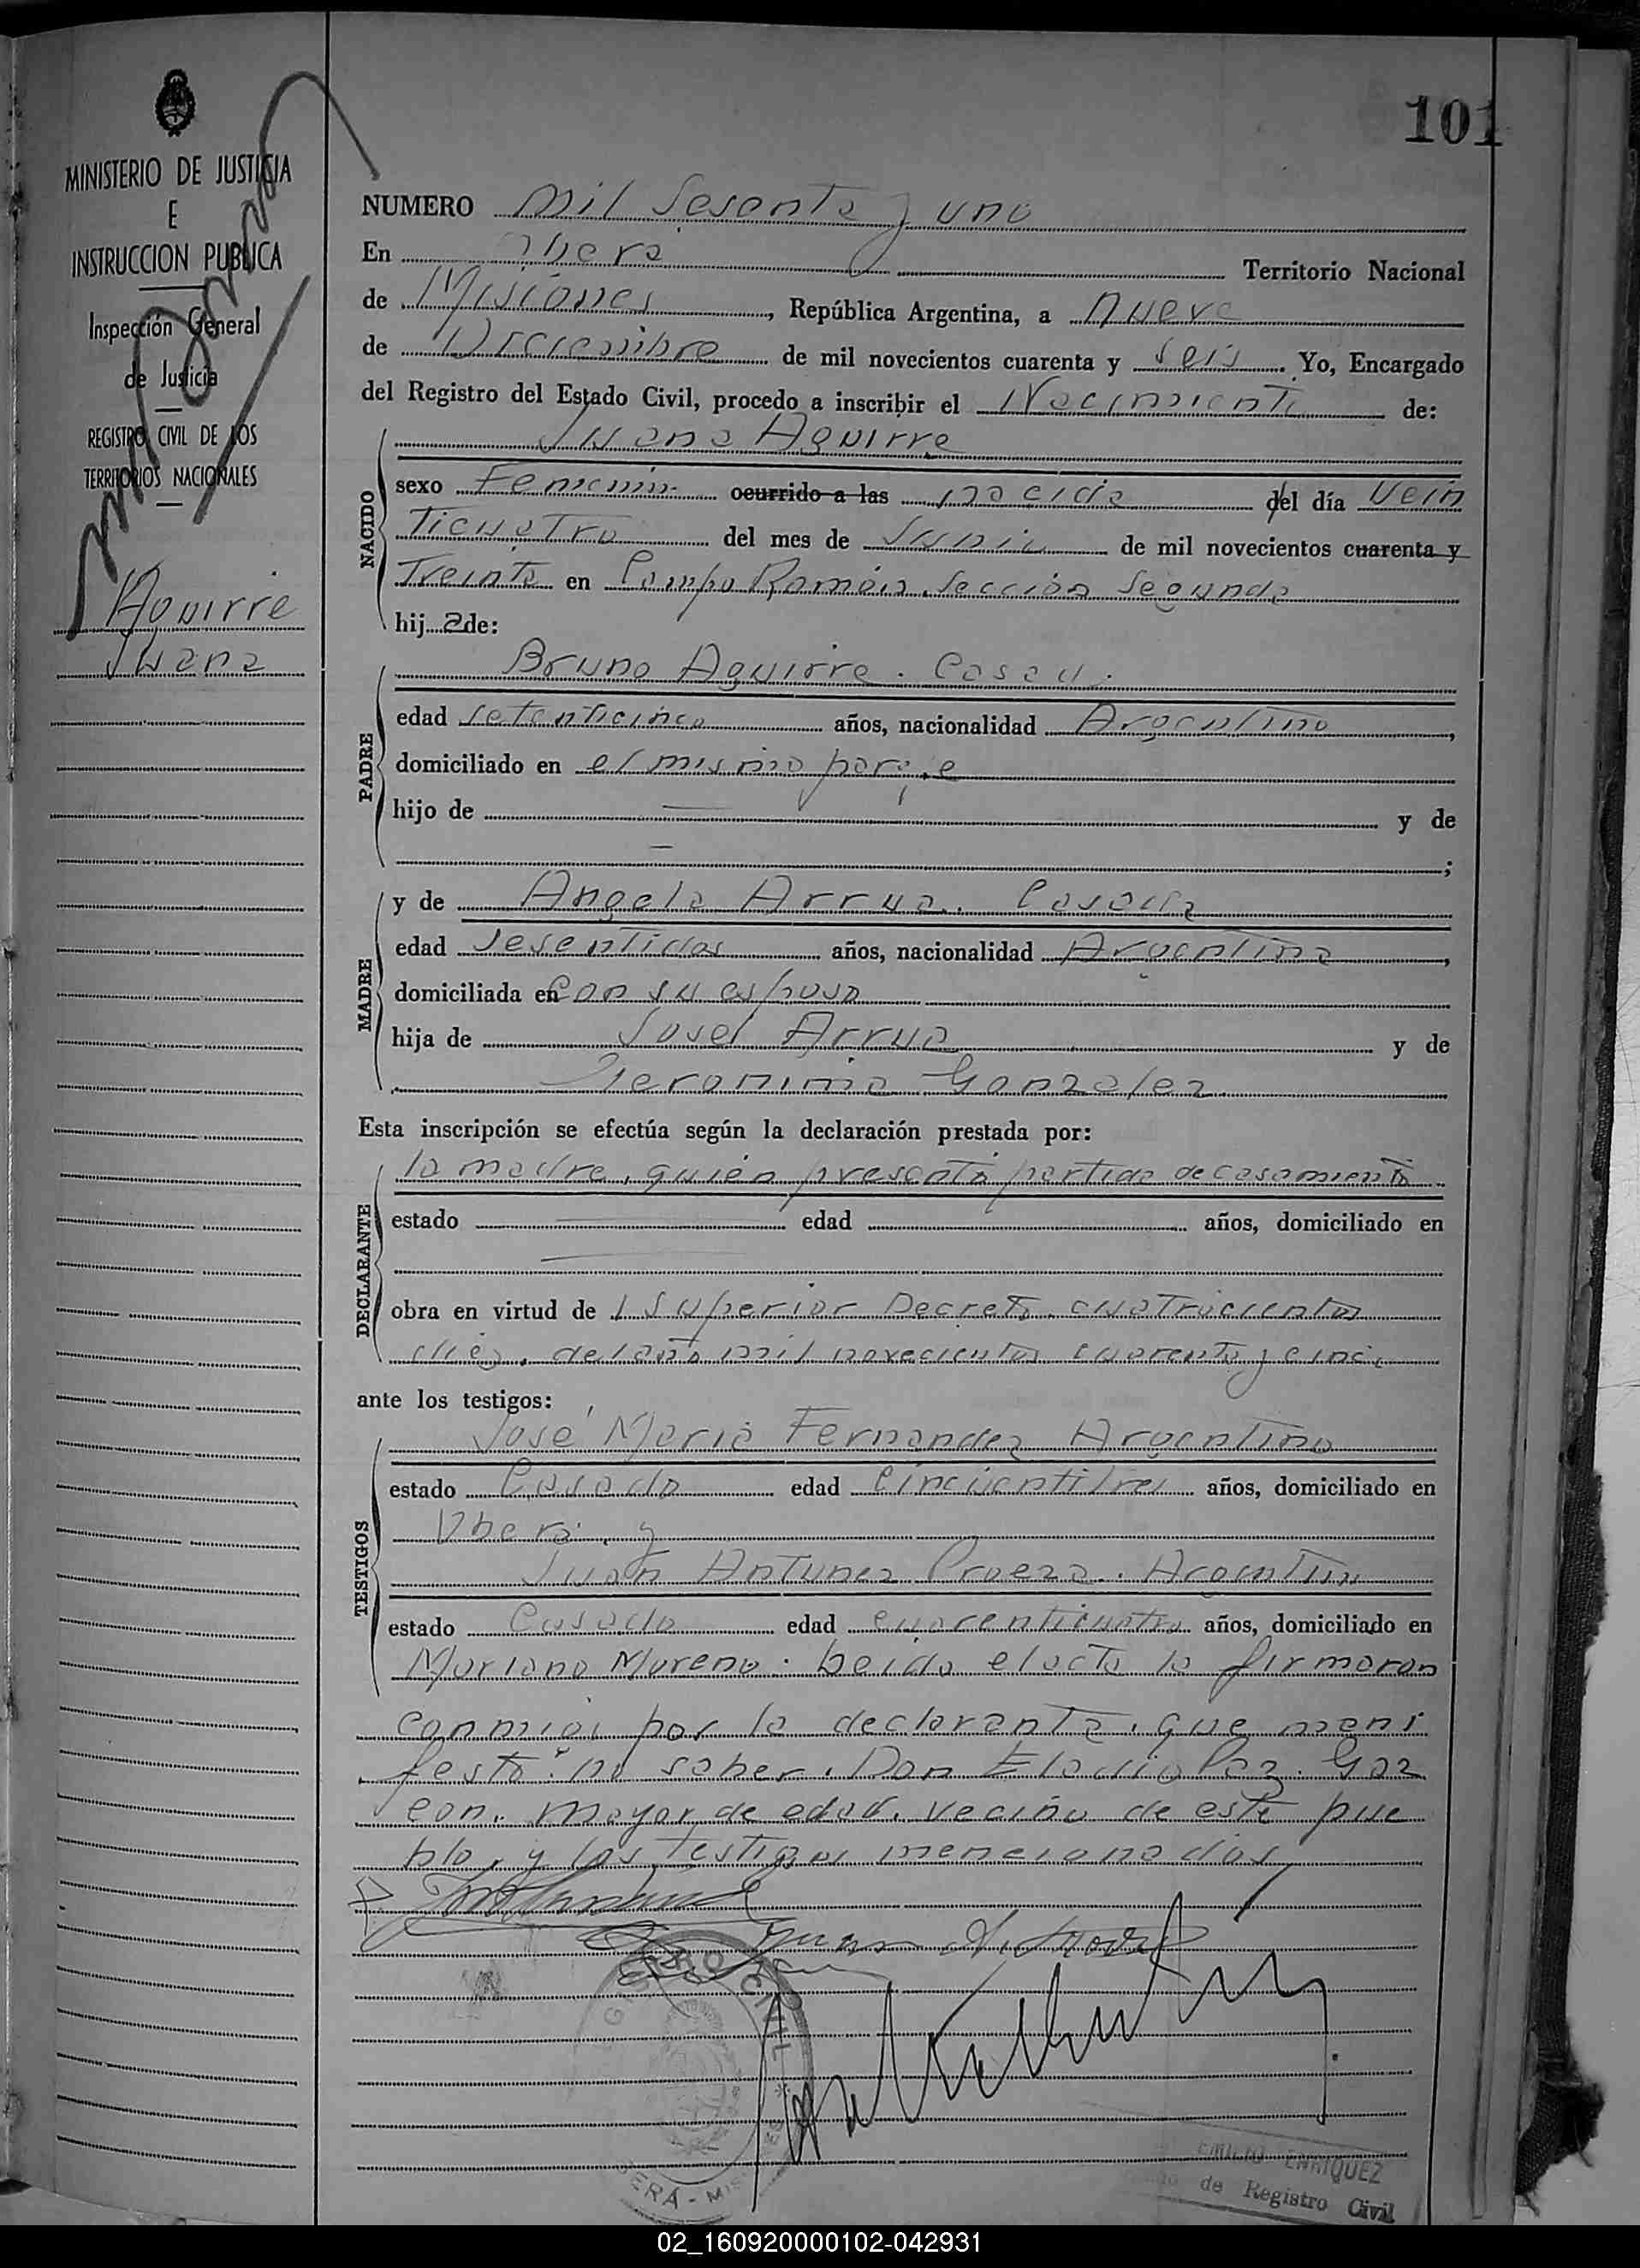 101
MINISTERIO DE JUSTICIA
E
INSTRUCCION PUBLICA
Inspección General
de Justicia
REGISTRO CIVIL DE LOS
TERRITORIOS NACIONALES
Aguirre
Juana
NUMERO mil sesenta y uno
En Oberá Territorio Nacional
de Misiones, República Argentina, a nueve
de Diciembre de mil novecientos cuarenta y seis. Yo, Encargado
del Registro del Estado Civil, procedo a inscribir el Nacimiento de:
Juana Aguirre
NACIDO
sexo Femenino ocurrido a las nacida del día vein
ticuatro del mes de Junio de mil novecientos cuarenta y
Treinta en Campo Ramón. Sección Segunda
hija de:
Bruno Aguirre. Casado.
PADRE
edad setenticinco años, nacionalidad Argentino,
domiciliado en el mismo paraje
hijo de y de
;
y de Angela Arrua. Casada
MADRE
edad sesentidos años, nacionalidad Argentina,
domiciliada en Con su esposo
hija de José Arrua y de
Geronima Gonzalez
Esta inscripción se efectúa según la declaración prestada por:
la madre, quién presenta partida de casamiento
DECLARANTE
estado edad años, domiciliado en
obra en virtud de l Superior Decreto cuatrocientos
diez, del año mil novecientos cuarenta y cinco
ante los testigos:
José Maria Fernandez Argentino
TESTIGOS
estado Casado edad Cincuentitres años, domiciliado en
Oberá y
Juan Antunez Proeza. Argentino
estado Casado edad cuarenticuatro años, domiciliado en
Mariano Moreno. Leida el acta la firmaron
conmigo por la declarante, que mani
festó no saber, Don Eladio Paz Gaz
con. mayor de edad, vecino de este pue
blo, y los testigos mencionados
REGISTRO CIVIL
OBERÁ - MIS
EMILIO ENRIQUEZ
de Registro Civil
02_160920000102-042931